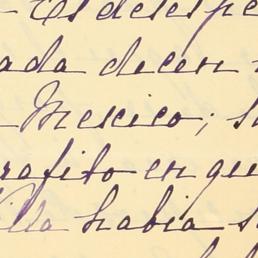 - El desespe
ada dicen
Mexico; s
rafito en qu
Villa habia s